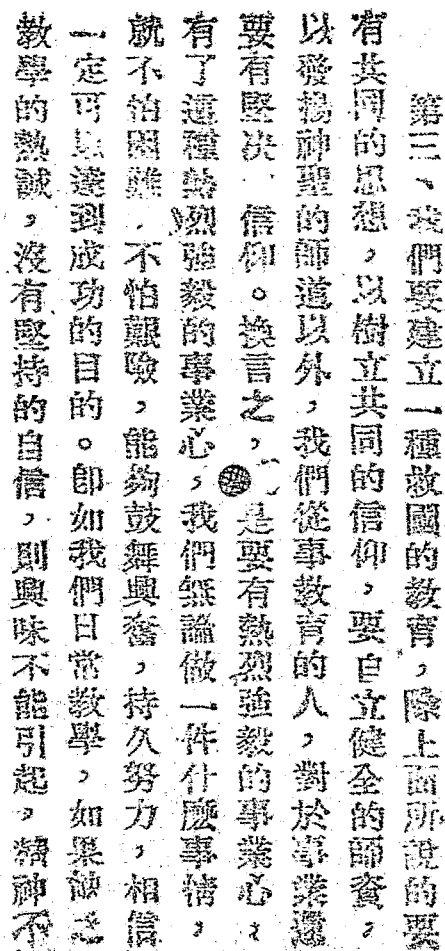 第三、我們要建立一種救國的教育，除上面所說的要
有共同的思想，以樹立共同的信仰，要自立健全的師資，
以發揚神聖的師道以外，我們從事教育的人，對於事業還
要有堅決、信仰。換言之，是要有熱烈強毅的事業心，
有了這種熱烈強毅的事業心，我們無論做一件什麼事情，
就不怕困難，不怕艱險，能夠鼓舞興奮，持久努力，相信
一定可以達到成功的目的。卽如我們日常教學，如果缺乏
教學的熱誠，沒有堅持的自信，則興味不能引起，精神不